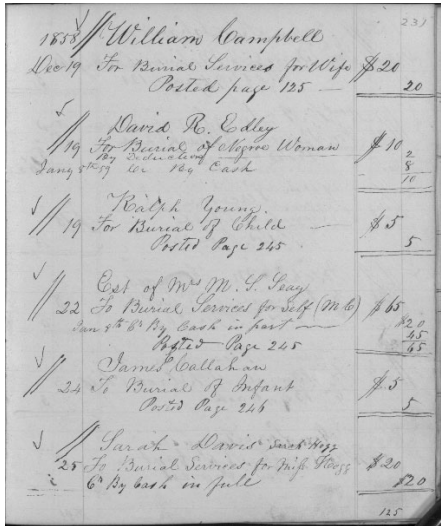 231
1858 // William Campbell
Dec 19 For Burial Services for Wife $20
Posted page 125 — 20
David R. Edley
// 19 For Burial of Negroe Woman $10
By Deduction 2
Jany 5th 59 Cr By Cash 8
10
Ralph Young.
// 19 For Burial of Child — $5
Posted Page 245 5
Est of Mrs M. S. Seay
// 22 To Burial Services for Self (M C) $65
Jan 5th By Cash in part — $20
45
Posted Page 245 65
James Callahan
// 24 To Burial of Infant $5
Posted Page 246 5
// Sarah Davis Sarah Hogg
25 To Burial Services for Miss Hogg $20
By Cash in full $20
125